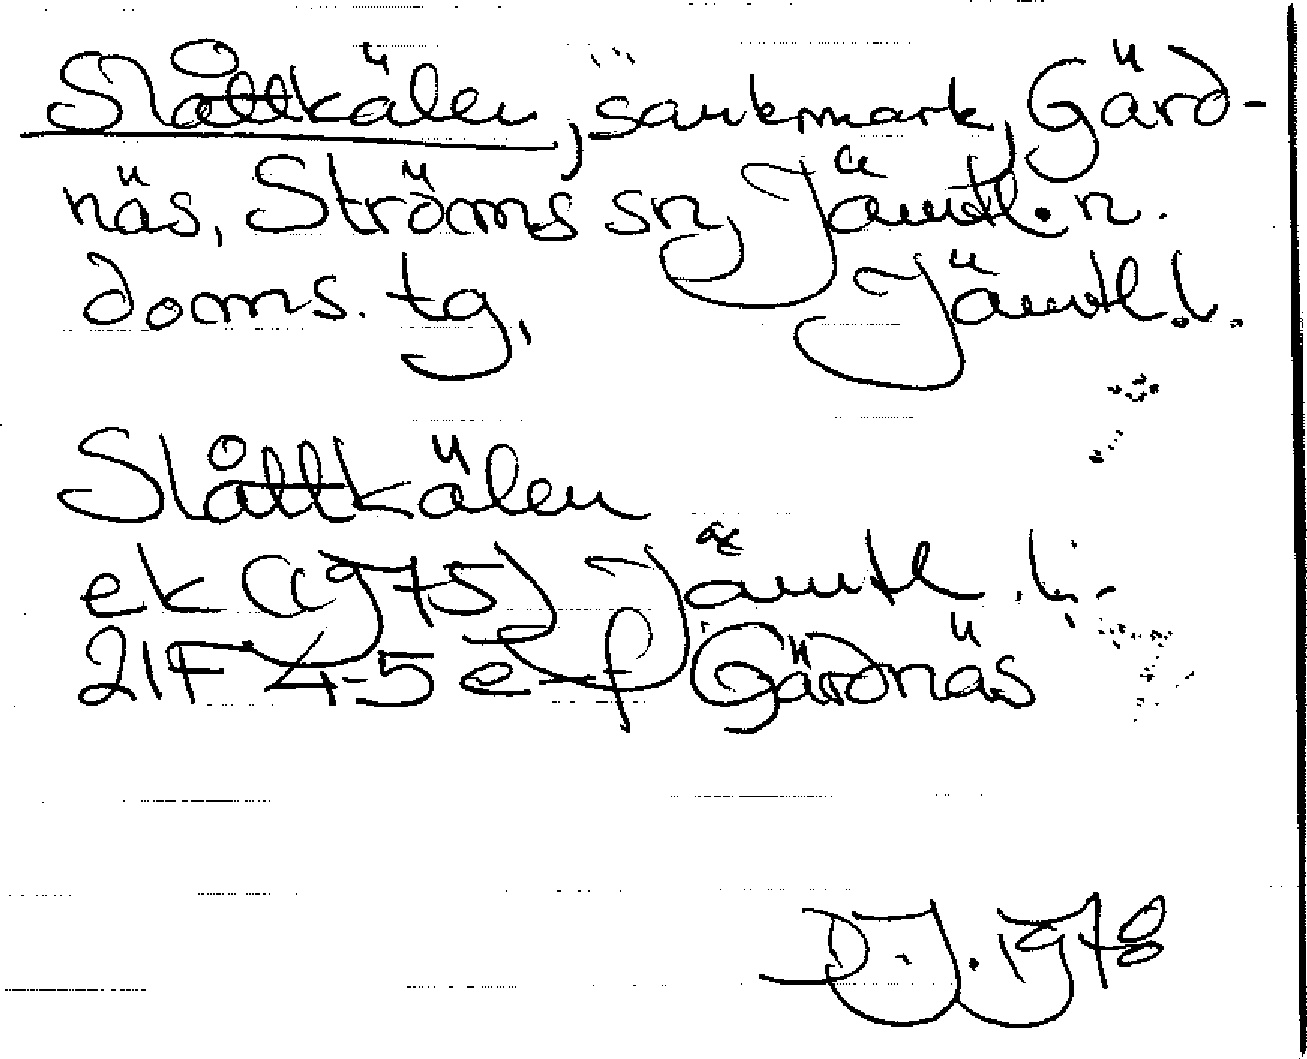 Slåttkälen, sankmark, Gärd-
näs, Ströms sn, Jämtl. n.
doms. tg, Jämtl. l.
Slåttkälen
ek (1975) Jämtl. l:
21F 4-5 e-f Gärdnäs
D.J. 1978